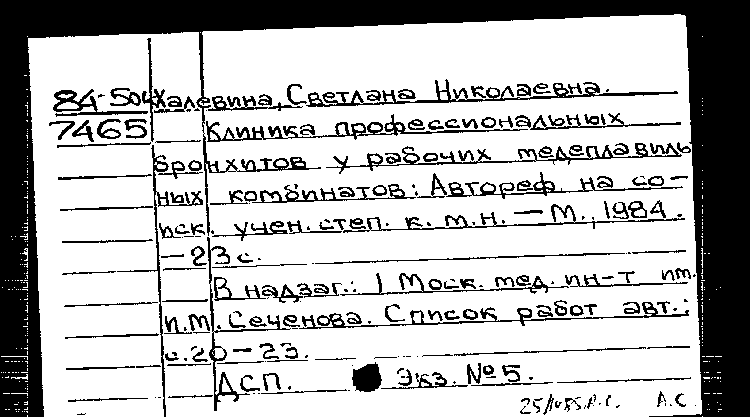 84-504 Халевина, Светлана Николаевна.
7465 Клиника профессиональных
бронхитов у рабочих медеплавиль
ных комбинатов: Автореф. на со-
иск. учен. степ. к. м. н. — М., 1984.
— 23 с.
В надзаг.: I Моск. мед. ин-т им.
И.М. Сеченова. Список работ авт.:
с. 20 – 23.
ДСП. Экз. № 5.
А.С